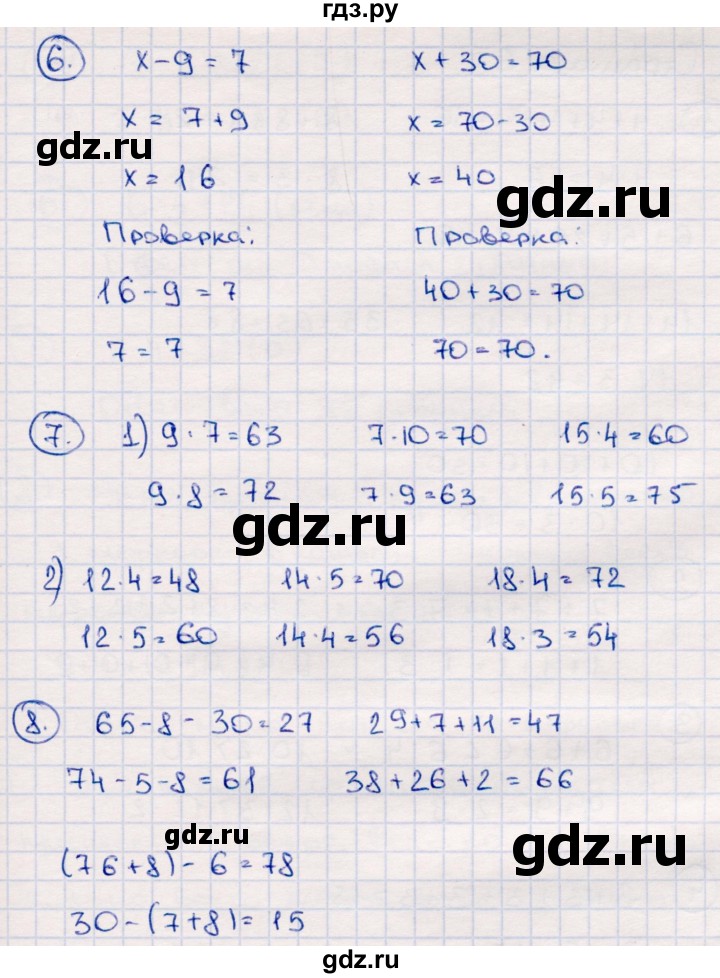 гдз.ру
6. x - 9 = 7 x + 30 = 70
x = 7 + 9 x = 70 - 30
gdz.ru
x = 16 x = 40
gdz.ru
Проверка: Проверка:
16 - 9 = 7 40 + 30 = 70
7 = 7 70 = 70.
7. 1) 9 · 7 = 63 7 · 10 = 70 15 · 4 = 60
9 · 8 = 72 7 · 9 = 63 15 · 5 = 75
gdz.ru
2) 12 · 4 = 48 14 · 5 = 70 18 · 4 = 72
12 · 5 = 60 14 · 4 = 56 18 · 3 = 54
8. 65 - 8 - 30 = 27 29 + 7 + 11 = 47
74 - 5 - 8 = 61 38 + 26 + 2 = 66
gdz.ru
gdz.ru
(76 + 8) - 6 = 78
30 - (7 + 8) = 15
gdz.ru